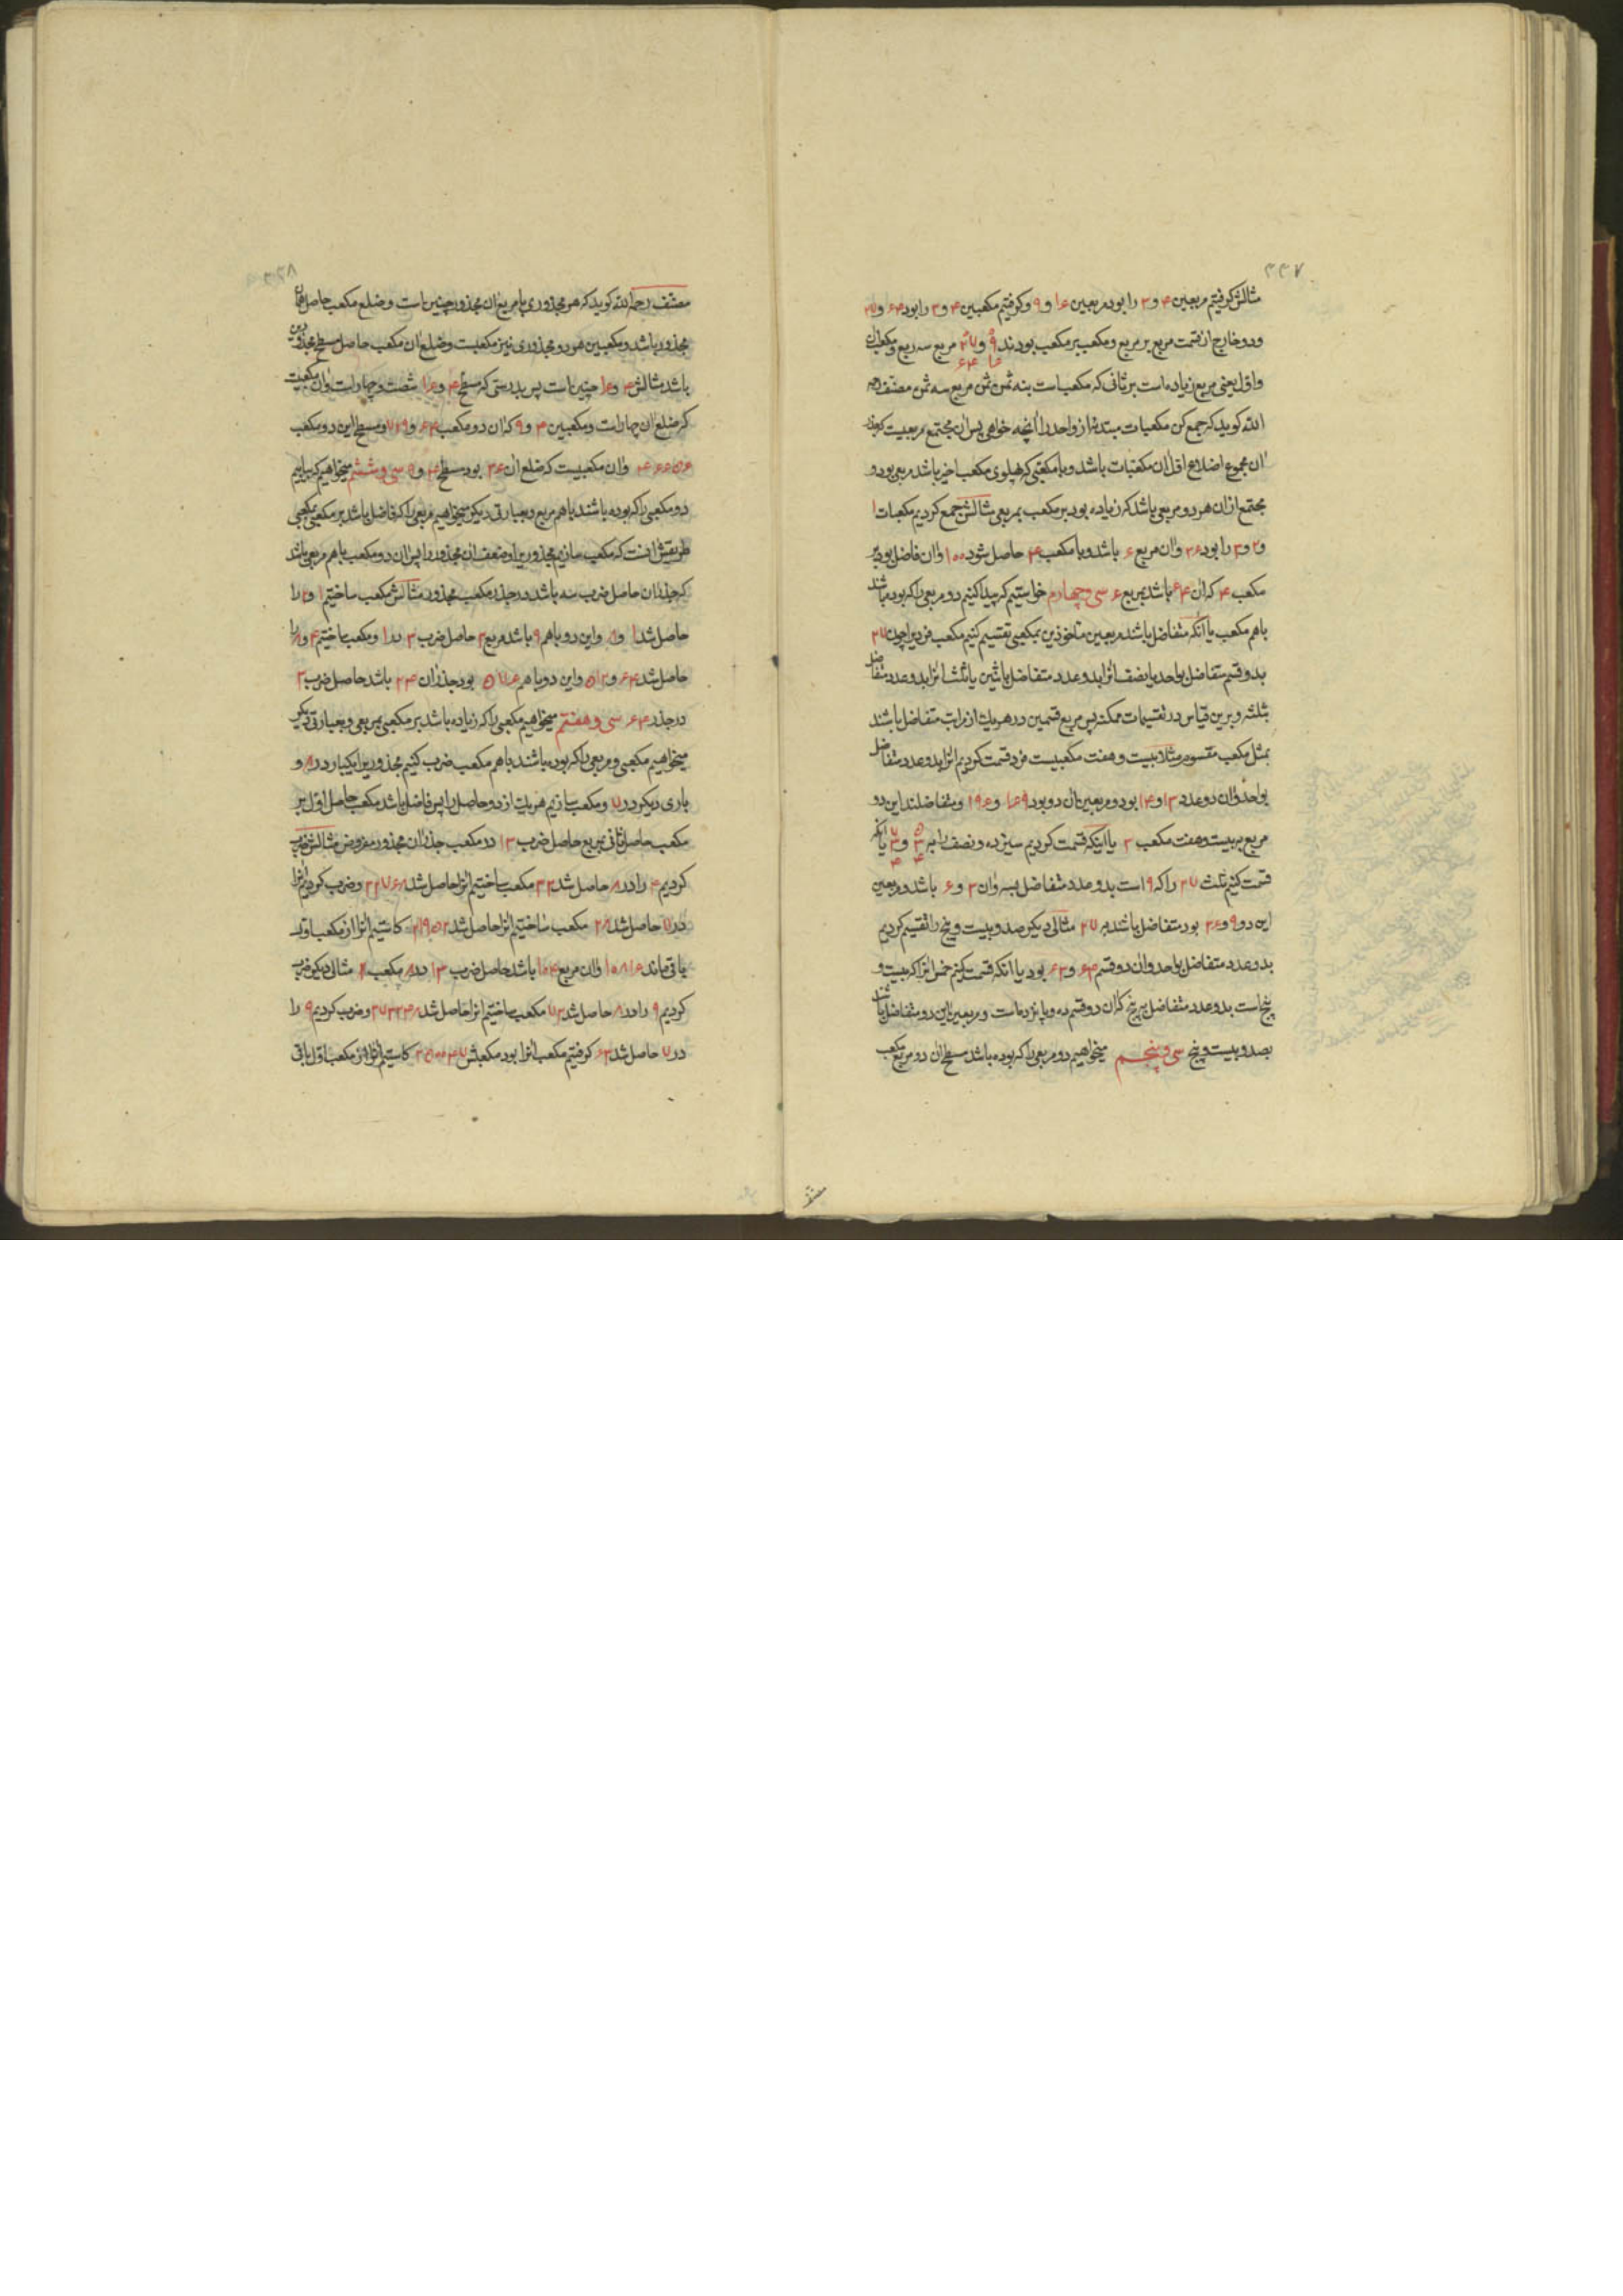 ۳۳۷
مثالش گرفتیم مربعین ۴ و ۳ را بود مربعین ۱۶ و ۹ و گرفتیم مکعبین ۴ و ۳ را بود ۶۴ و ۲۷
و دو خارج از قسمت مربع بر مربع و مکعب بر مکعب بودند ۹ ۱۶ و ۲۷ ۶۴ مربع سه ربع و مکعب ان
و اول یعنی مربع زیاده است بر ثانی که مکعب است بنه ثمن ثمن مربع سه ثمن مصنف رحمه
الله کوید که جمع کن مکعبات مبتدئه از واحد را آنچه خواهی پس ان مجتمع مربعیست که جذر
ان مجموع اضلاع اول ان مکعبات باشد و با مکعبی که پهلوی مکعب اخیر باشد مربعی بود و
مجتمع از ان هر دو مربعی باشد که زیاده بود بر مکعب بمربعی مثالش جمع کردیم مکعبات ۱
و ۲ و ۳ را بود ۳۶ و ان مربع ۶ باشد و با مکعب ۴ حاصل شود ۱۰۰ و ان فاضل بود بر
مکعب ۴ که ان ۶۴ باشد بمربع ۶ سی و چهارم خواستیم که پیدا کنیم دو مربعی را که بوده باشند
باهم مکعب یا آنکه متفاضل باشد مربعین ماخوذین بمکعبی تقسیم کنیم مکعب فردیرا چون ۲۷
بدو قسم متفاضل بواحد یا نصف انرا بدو عدد متفاضل باثنین یا ثلث انرا بدو عدد متفاضل
بثلثه و برین قیاس در تقسیمات ممکنه پس مربع قسمین در هر یک از مراتب متفاضل باشند
بمثل مکعب مقسوم مثلا بیست و هفت مکعبیست فرد قسمت کردیم انرا بدو عدد متفاضل
بواحد و ان دو عدد ۱۳ و ۱۴ بود و مربعین ان دو بود ۱۶۹ و ۱۹۶ و متفاضلند این دو
مربع به بیست و هفت مکعب ۳ یا اینکه قسمت کردیم سیزده و نصف را به و یا انکه
قسمت کنیم ثلث ۲۷ را که ۹ است بدو عدد متفاضل بسه و ان ۳ و ۶ باشد و مربعین
این دو ۹ و ۳۶ بود متفاضل باشد به ۲۷ مثالی دیگر صد و بیست و پنج را تقسیم کردیم
بدو عدد متفاضل بواحد و ان دو قسم ۶۳ و ۶۲ بود یا انکه قسمت کنیم خمس انرا که بیست و
پنج است بدو عدد متفاضل به پنج که ان دو قسم ده و پانزده است و مربعین این دو متفاضل باشند
بصد و بیست و پنج سی و پنجم میخواهیم دو مربعی را که بوده باشد مسطح ان دو مربع مکعب
مصنف
۳۳۸
مصنف رحمه الله کوید که هر مجذوری با مربع ان مجذور چنین است و ضلع مکعب حاصل همان
مجذور باشد و مکعبین هر دو مجذوری نیز مکعبست و ضلع ان مکعب حاصل مسطح مجذورین
باشد مثالش ۴ و ۱۶ چنین است پس بدرستی که مسطح ۴ و ۱۶ شصت و چهار است و ان مکعبیست
که ضلع ان چهار است و مکعبین ۴ و ۹ که ان دو مکعب ۶۴ و ۷۲۹ و مسطح این دو مکعب
۴۶۶۵۶ و ان مکعبیست که ضلع ان ۳۶ بود مسطح ۴ و ۹ سی و ششم میخواهیم که بیابیم
دو مکعبی را که بوده باشند باهم مربع و بعبارتی دیگر میخواهیم مربعی را که فاضل باشد بر مکعبی بمکعبی
طریقش آنست که مکعب سازیم مجذوریرا و ضعف ان مجذور را پس ان دو مکعب باهم مربعی باشد
که جذر ان حاصل ضرب سه باشد در جذر مکعب مجذور مثالش مکعب ساختیم ۱ و ۲ را
حاصل شد ۱ و ۸ و این دو باهم ۹ باشد مربع ۳ حاصل ضرب ۳ در ۱ و مکعب ساختیم ۴ و ۸ را
حاصل شد ۶۴ و ۵۱۲ و این دو باهم ۵۷۶ بود جذر ان ۲۴ باشد حاصل ضرب ۳
در جذر ۶۴ سی و هفتم میخواهیم مکعبی را که زیاده باشد بر مکعبی بمربعی و بعبارتی دیگر
میخواهیم مکعبی و مربعی را که بوده باشند باهم مکعب ضرب کنیم مجذوریرا یکبار در ۸ و
باری دیگر در ۷ و مکعب سازیم هر یک از دو حاصل را پس فاضل باشد مکعب حاصل اول بر
مکعب حاصل ثانی بمربع حاصل ضرب ۱۳ در مکعب جذر ان مجذور مفروض مثالش ضرب
کردیم ۴ را در ۸ حاصل شد ۳۲ مکعب ساختیم انرا حاصل شد ۳۲۷۶۸ و ضرب کردیم انرا
در ۷ حاصل شد ۲۸ مکعب ساختیم انرا حاصل شد ۲۱۹۵۲ کاستیم انرا از مکعب اول
باقی ماند ۱۰۸۱۶ و ان مربع ۱۰۴ باشد حاصل ضرب ۱۳ در ۸ مکعب ۲ مثالی دیگر ضرب
کردیم ۹ را در ۸ حاصل شد ۷۲ مکعب ساختیم انرا حاصل شد ۳۷۳۲۴۸ و ضرب کردیم ۹ را
در ۷ حاصل شد ۶۳ گرفتیم مکعب انرا بود مکعبش ۲۵۰۰۴۷ کاستیم انرا از مکعب اول باقی